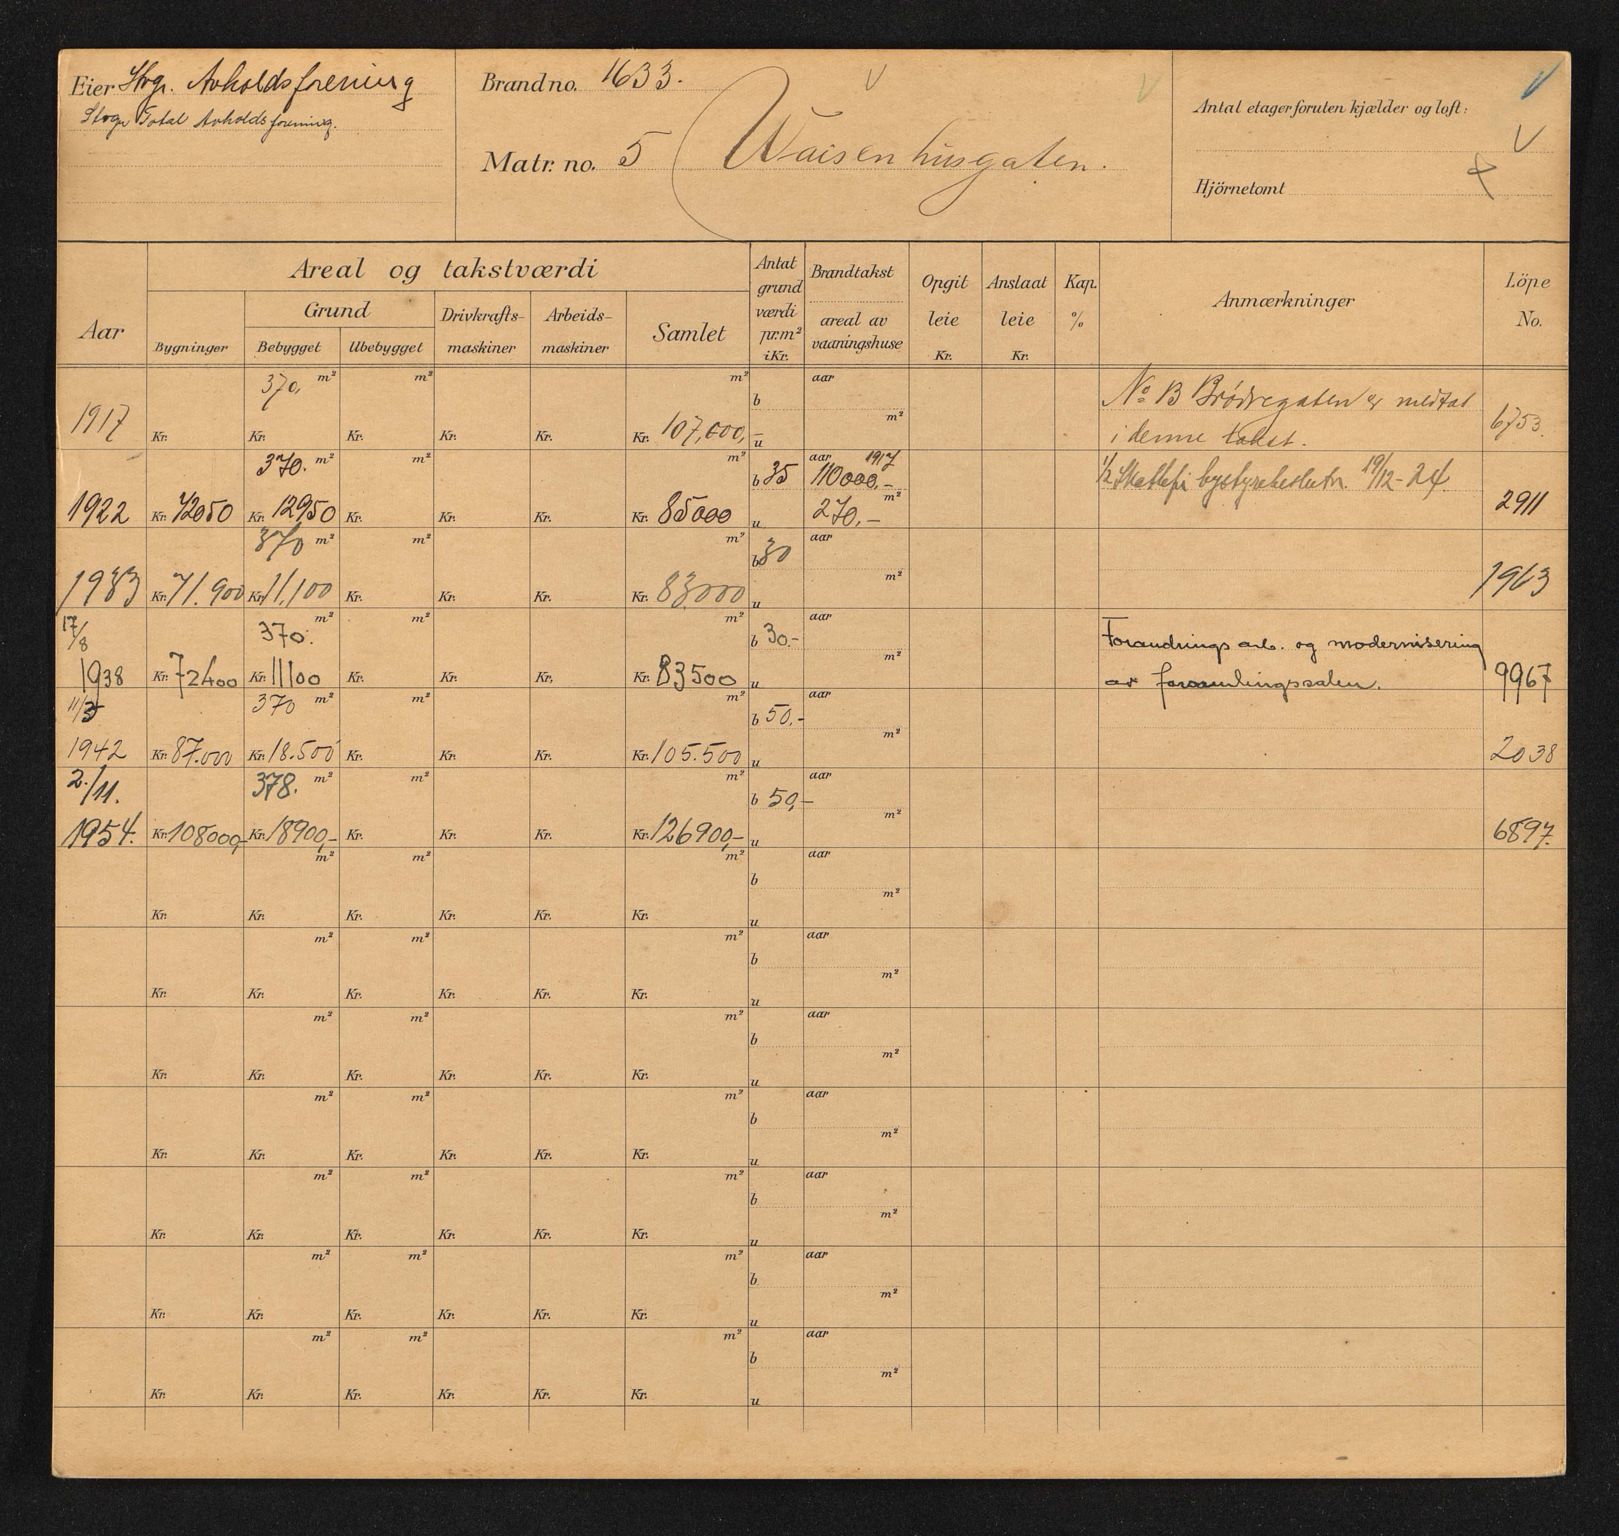 Eier Stvgr. Avholdsforening
Stvgr Total Avholdsforening.
Brandno. 1633.
Matr. no. 5 Waisenhusgaten.
Antal etager foruten kjælder og loft:
Hjörnetomt
Aar
Areal og takstværdi
Bygninger
Grund
Bebygget Ubebygget
Drivkrafts-
maskiner
Arbeids-
maskiner
Samlet
Antat
grund
værdi
pr.m²
i Kr.
Brandtakst
areal av
vaaningshuse
Opgit
leie
Kr.
Anslaat
leie
Kr.
Kap.
%
Anmærkninger
Löpe
No.
370. m² m² m² aar
b m²
1917 Kr. Kr. Kr. Kr. Kr. Kr. 107,000,- u
No B Brødregaten er medtat
i denne takst.
6753.
370. m² m² m² b 35 aar 1917
110000.- m²
1922 Kr. 72050 Kr. 12950 Kr. Kr. Kr. Kr. 85000 u 270,-
1/2 Skattefri bystyrebeslutn. 19/12-24.
2911
370 m² m² m² b 30 aar
m²
1933 Kr. 71.900 Kr. 11,100 Kr. Kr. Kr. Kr. 83,000 u
1963
17/8 370. m² m² m² aar
b 30.- m²
1938 Kr. 72400 Kr. 11100 Kr. Kr. Kr. Kr. 83500 u
Forandrings arb. og modernisering
av forsamlingssalen.
9967
11/3 370 m² m² m² aar
b 50.- m²
1942 Kr. 87.000 Kr. 18.500 Kr. Kr. Kr. Kr. 105.500 u
2038
2./11. 378. m² m² m² aar
b 50,- m²
1954. Kr. 108000,- Kr. 18900,- Kr. Kr. Kr. Kr. 126900,- u
6897.
m² m² m² aar
b m²
Kr. Kr. Kr. Kr. Kr. Kr. u
m² m² m² aar
b m²
Kr. Kr. Kr. Kr. Kr. Kr. u
m² m² m² aar
b m²
Kr. Kr. Kr. Kr. Kr. Kr. u
m² m² m² aar
b m²
Kr. Kr. Kr. Kr. Kr. Kr. u
m² m² m² aar
b m²
Kr. Kr. Kr. Kr. Kr. Kr. u
m² m² m² aar
b m²
Kr. Kr. Kr. Kr. Kr. Kr. u
m² m² m² aar
b m²
Kr. Kr. Kr. Kr. Kr. Kr. u